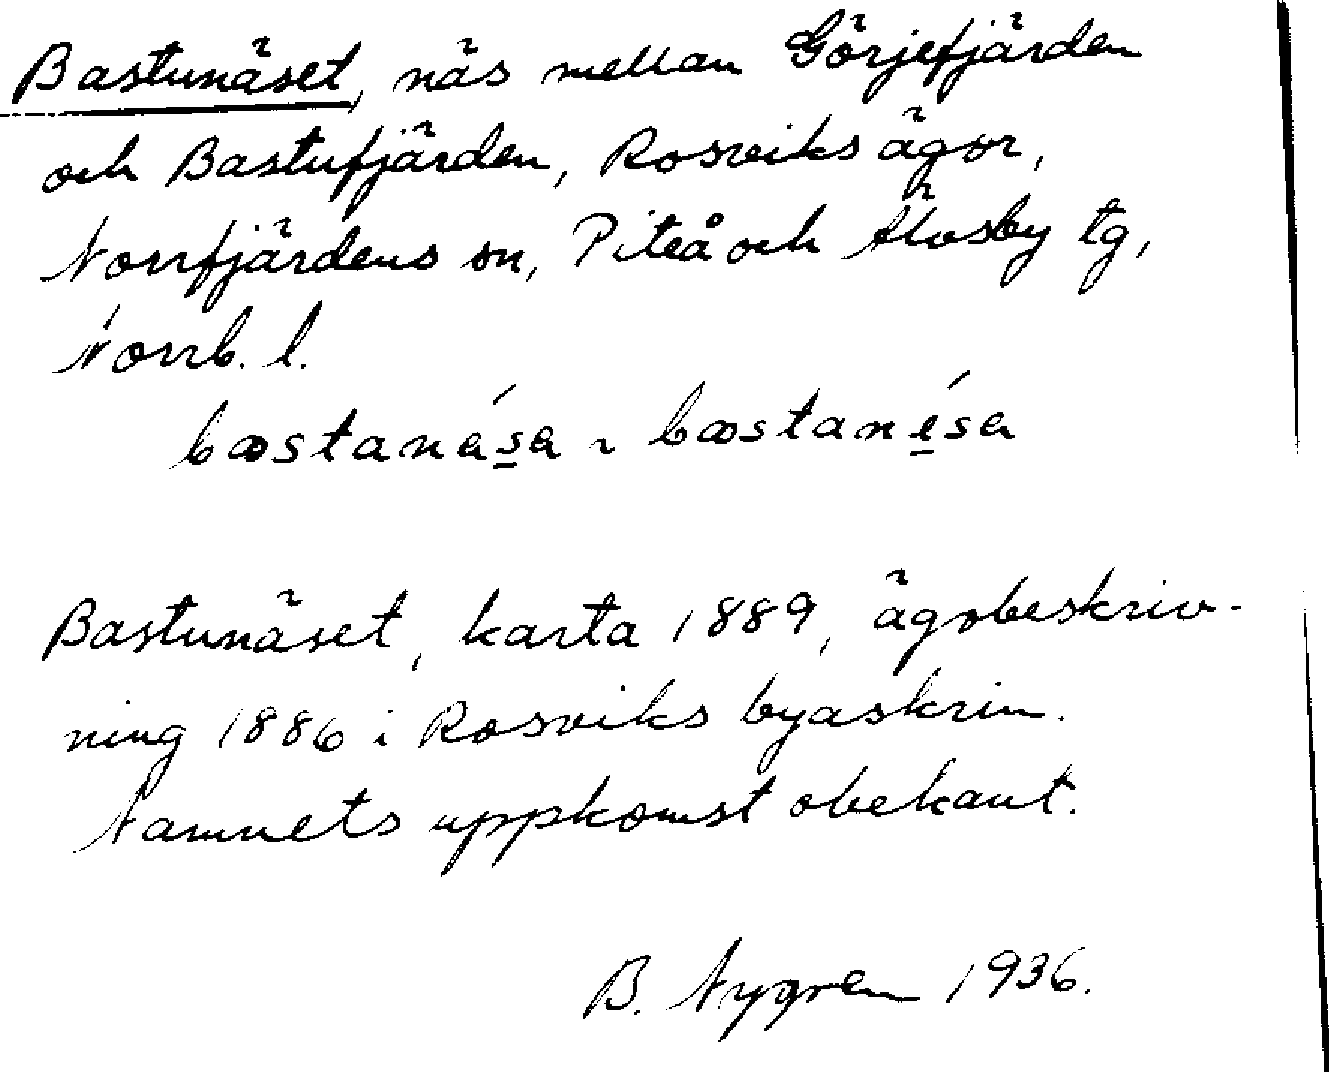 Bastunäset, näs mellan Görjefjärden
och Bastufjärden, Rosviks ägor,
Norrfjärdens sn, Piteå och Älvsby tg,
Norrb. l.
Bastunäset, karta 1889, ägobeskriv-
ning 1886 i Rosviks byaskrin.
Namnets uppkomst obekant.
B. Nygren 1936.